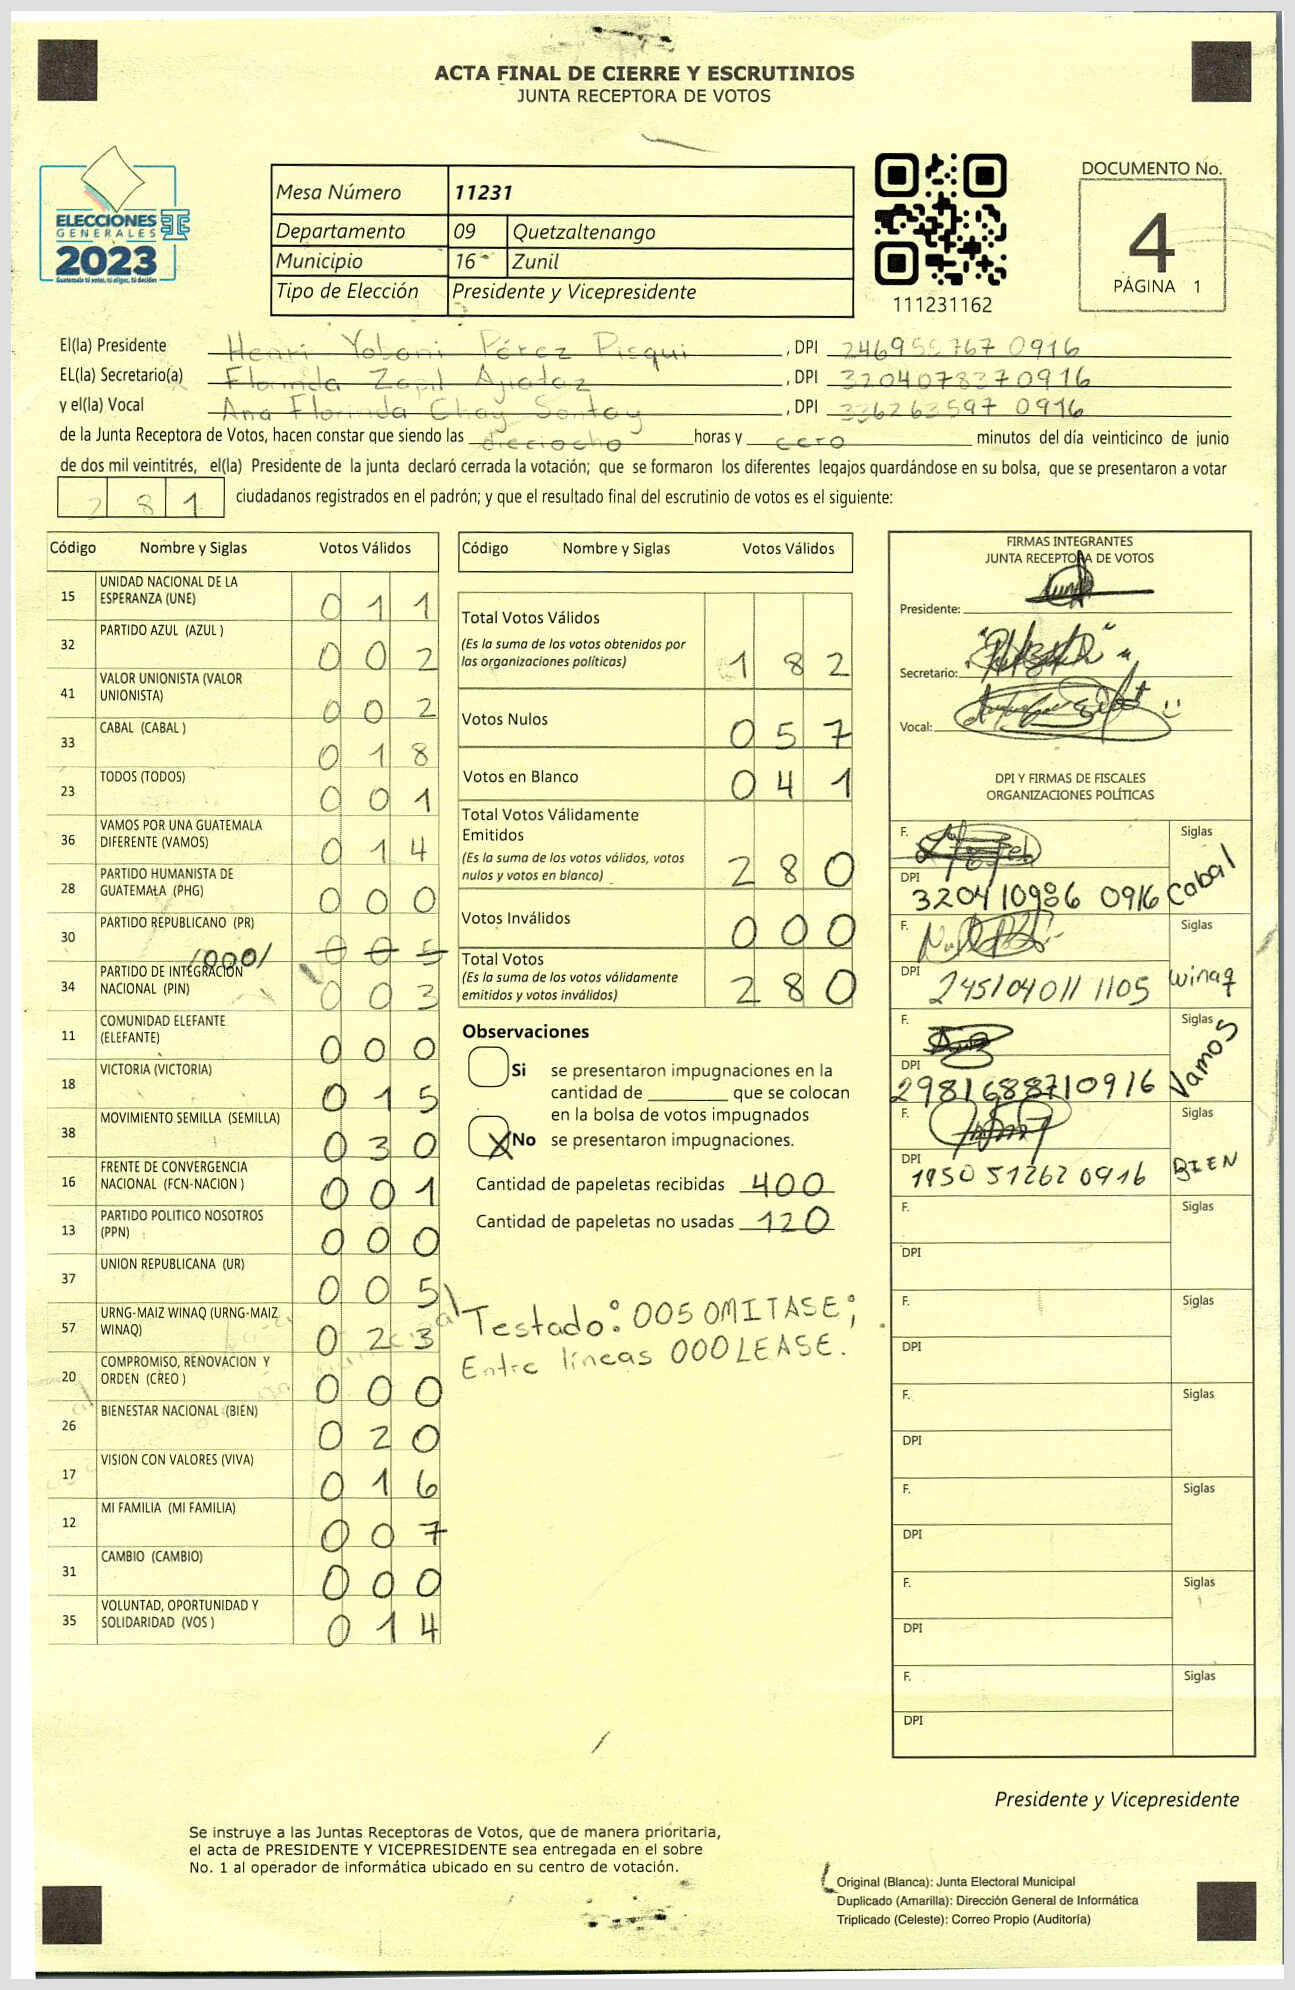 ACTA FINAL DE CIERRE Y ESCRUTINIOS
JUNTA RECEPTORA DE VOTOS
ELECCIONES
GENERALES
2023
Guatemala tú votas, tú eliges, tú decides
Mesa Número 11231
Departamento 09 Quetzaltenango
Municipio 16 Zunil
Tipo de Elección Presidente y Vicepresidente
111231162
DOCUMENTO No.
4
PÁGINA 1
El(la) Presidente Henri Yobani Pérez Pisqui, DPI 246955767 0916
EL(la) Secretario(a) Florinda Zapil Ajiataz, DPI 320407837 0916
y el(la) Vocal Ana Florinda Chay Sontay, DPI 336263597 0916
de la Junta Receptora de Votos, hacen constar que siendo las dieciocho horas y cero minutos del día veinticinco de junio
de dos mil veintitrés, el(la) Presidente de la junta declaró cerrada la votación; que se formaron los diferentes legajos guardándose en su bolsa, que se presentaron a votar
281 ciudadanos registrados en el padrón; y que el resultado final del escrutinio de votos es el siguiente:
Código Nombre y Siglas Votos Válidos
15 UNIDAD NACIONAL DE LA ESPERANZA (UNE) 011
32 PARTIDO AZUL (AZUL ) 002
41 VALOR UNIONISTA (VALOR UNIONISTA) 002
33 CABAL (CABAL ) 018
23 TODOS (TODOS) 001
36 VAMOS POR UNA GUATEMALA DIFERENTE (VAMOS) 014
28 PARTIDO HUMANISTA DE GUATEMALA (PHG) 000
30 PARTIDO REPUBLICANO (PR) 005
/000/
34 PARTIDO DE INTEGRACIÓN NACIONAL (PIN) 003
11 COMUNIDAD ELEFANTE (ELEFANTE) 000
18 VICTORIA (VICTORIA) 015
38 MOVIMIENTO SEMILLA (SEMILLA) 030
16 FRENTE DE CONVERGENCIA NACIONAL (FCN-NACION ) 001
13 PARTIDO POLITICO NOSOTROS (PPN) 000
37 UNION REPUBLICANA (UR) 005
57 URNG-MAIZ WINAQ (URNG-MAIZ WINAQ) 023
20 COMPROMISO, RENOVACION Y ORDEN (CREO ) 000
26 BIENESTAR NACIONAL (BIEN) 020
17 VISION CON VALORES (VIVA) 016
12 MI FAMILIA (MI FAMILIA) 007
31 CAMBIO (CAMBIO) 000
35 VOLUNTAD, OPORTUNIDAD Y SOLIDARIDAD (VOS ) 014
Código Nombre y Siglas Votos Válidos
Total Votos Válidos
(Es la suma de los votos obtenidos por
las organizaciones políticas) 182
Votos Nulos 057
Votos en Blanco 041
Total Votos Válidamente
Emitidos
(Es la suma de los votos válidos, votos
nulos y votos en blanco) 280
Votos Inválidos 000
Total Votos
(Es la suma de los votos válidamente
emitidos y votos inválidos) 280
Observaciones
Si se presentaron impugnaciones en la
cantidad de ________ que se colocan
en la bolsa de votos impugnados
X No se presentaron impugnaciones.
Cantidad de papeletas recibidas 400
Cantidad de papeletas no usadas 120
Testado: 005 OMITASE;
Entre líneas 000 LEASE.
FIRMAS INTEGRANTES
JUNTA RECEPTORA DE VOTOS
Presidente:
Secretario:
Vocal:
DPI Y FIRMAS DE FISCALES
ORGANIZACIONES POLÍTICAS
F. Siglas
DPI 320410986 0916 Cabal
F. Siglas
DPI 245104011 1105 Winaq
F. Siglas
DPI 2981688710916 Vamos
F. Siglas
DPI 1950 51262 0916 BIEN
F. Siglas
DPI
F. Siglas
DPI
F. Siglas
DPI
F. Siglas
DPI
F. Siglas
DPI
F. Siglas
DPI
Presidente y Vicepresidente
Se instruye a las Juntas Receptoras de Votos, que de manera prioritaria,
el acta de PRESIDENTE Y VICEPRESIDENTE sea entregada en el sobre
No. 1 al operador de informática ubicado en su centro de votación.
Original (Blanca): Junta Electoral Municipal
Duplicado (Amarilla): Dirección General de Informática
Triplicado (Celeste): Correo Propio (Auditoría)